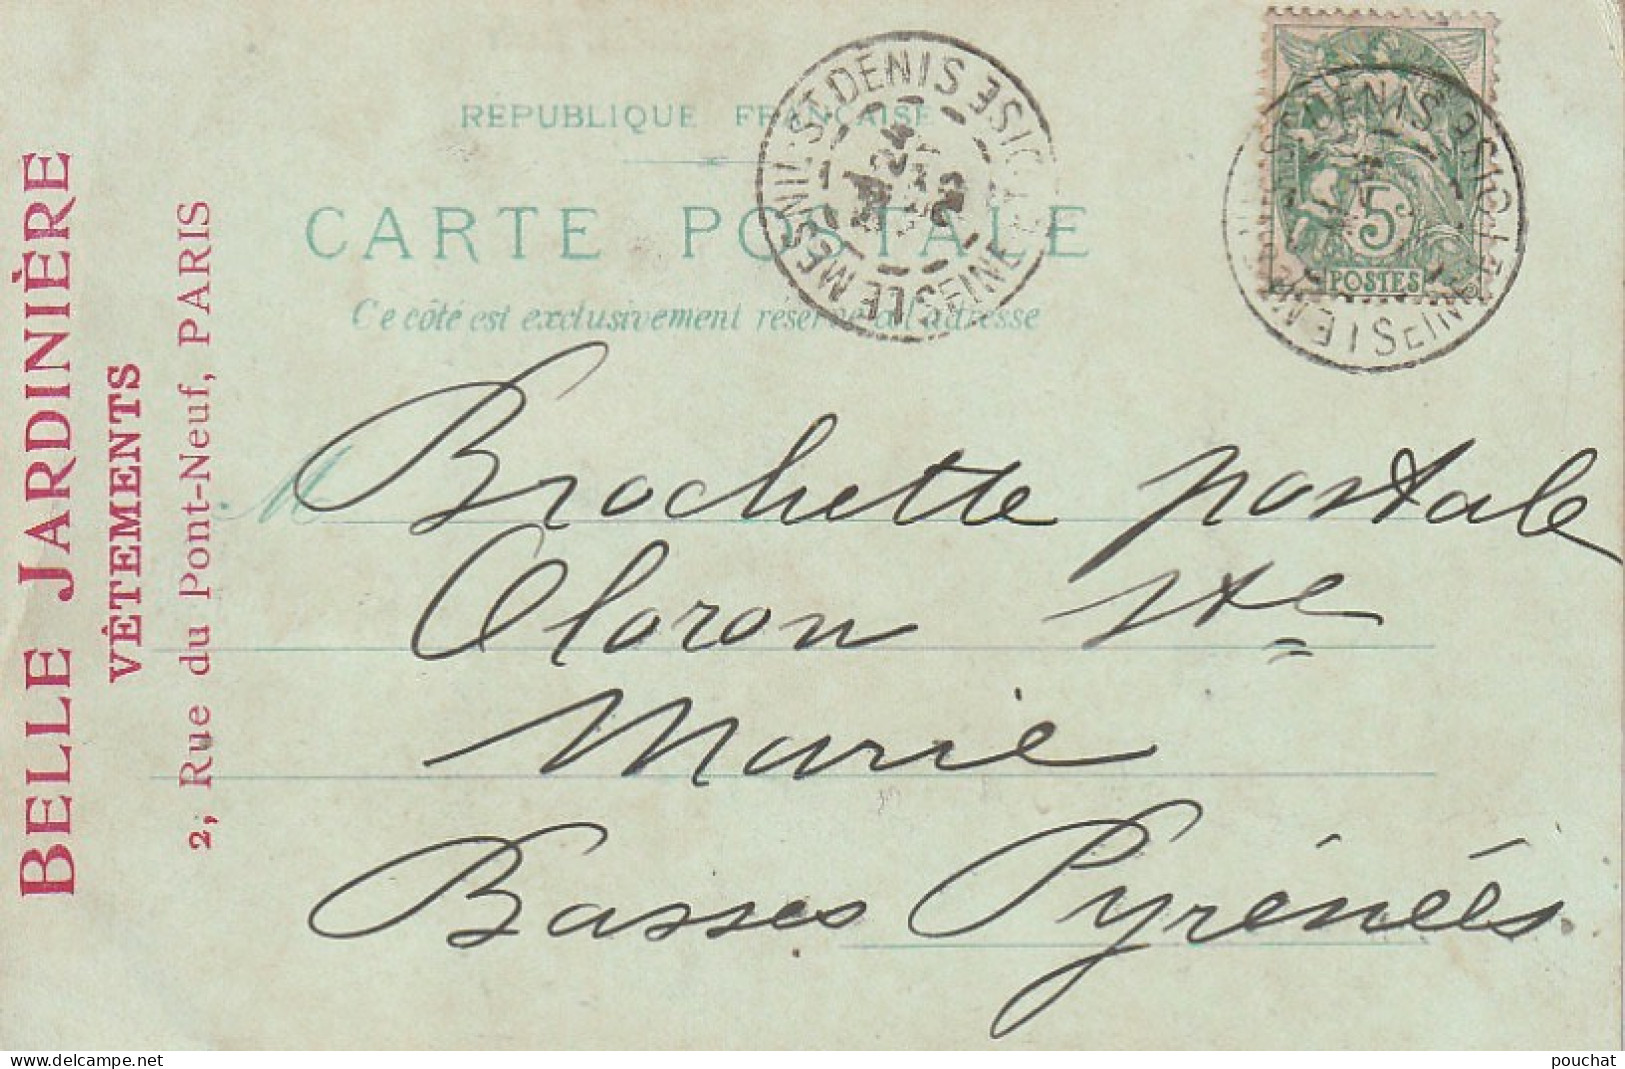 BELLE JARDINIÈRE
VÊTEMENTS
2, Rue du Pont-Neuf, PARIS
REPUBLIQUE FRANÇAISE
CARTE POSTALE
Ce côté est exclusivement réservé à l'adresse
LE MESNIL-ST-DENIS
SEINE
24
5c
POSTES
M
Brochette postale
Oloron Ste
Marie
Basses Pyrénées
www.delcampe.net
pouchat